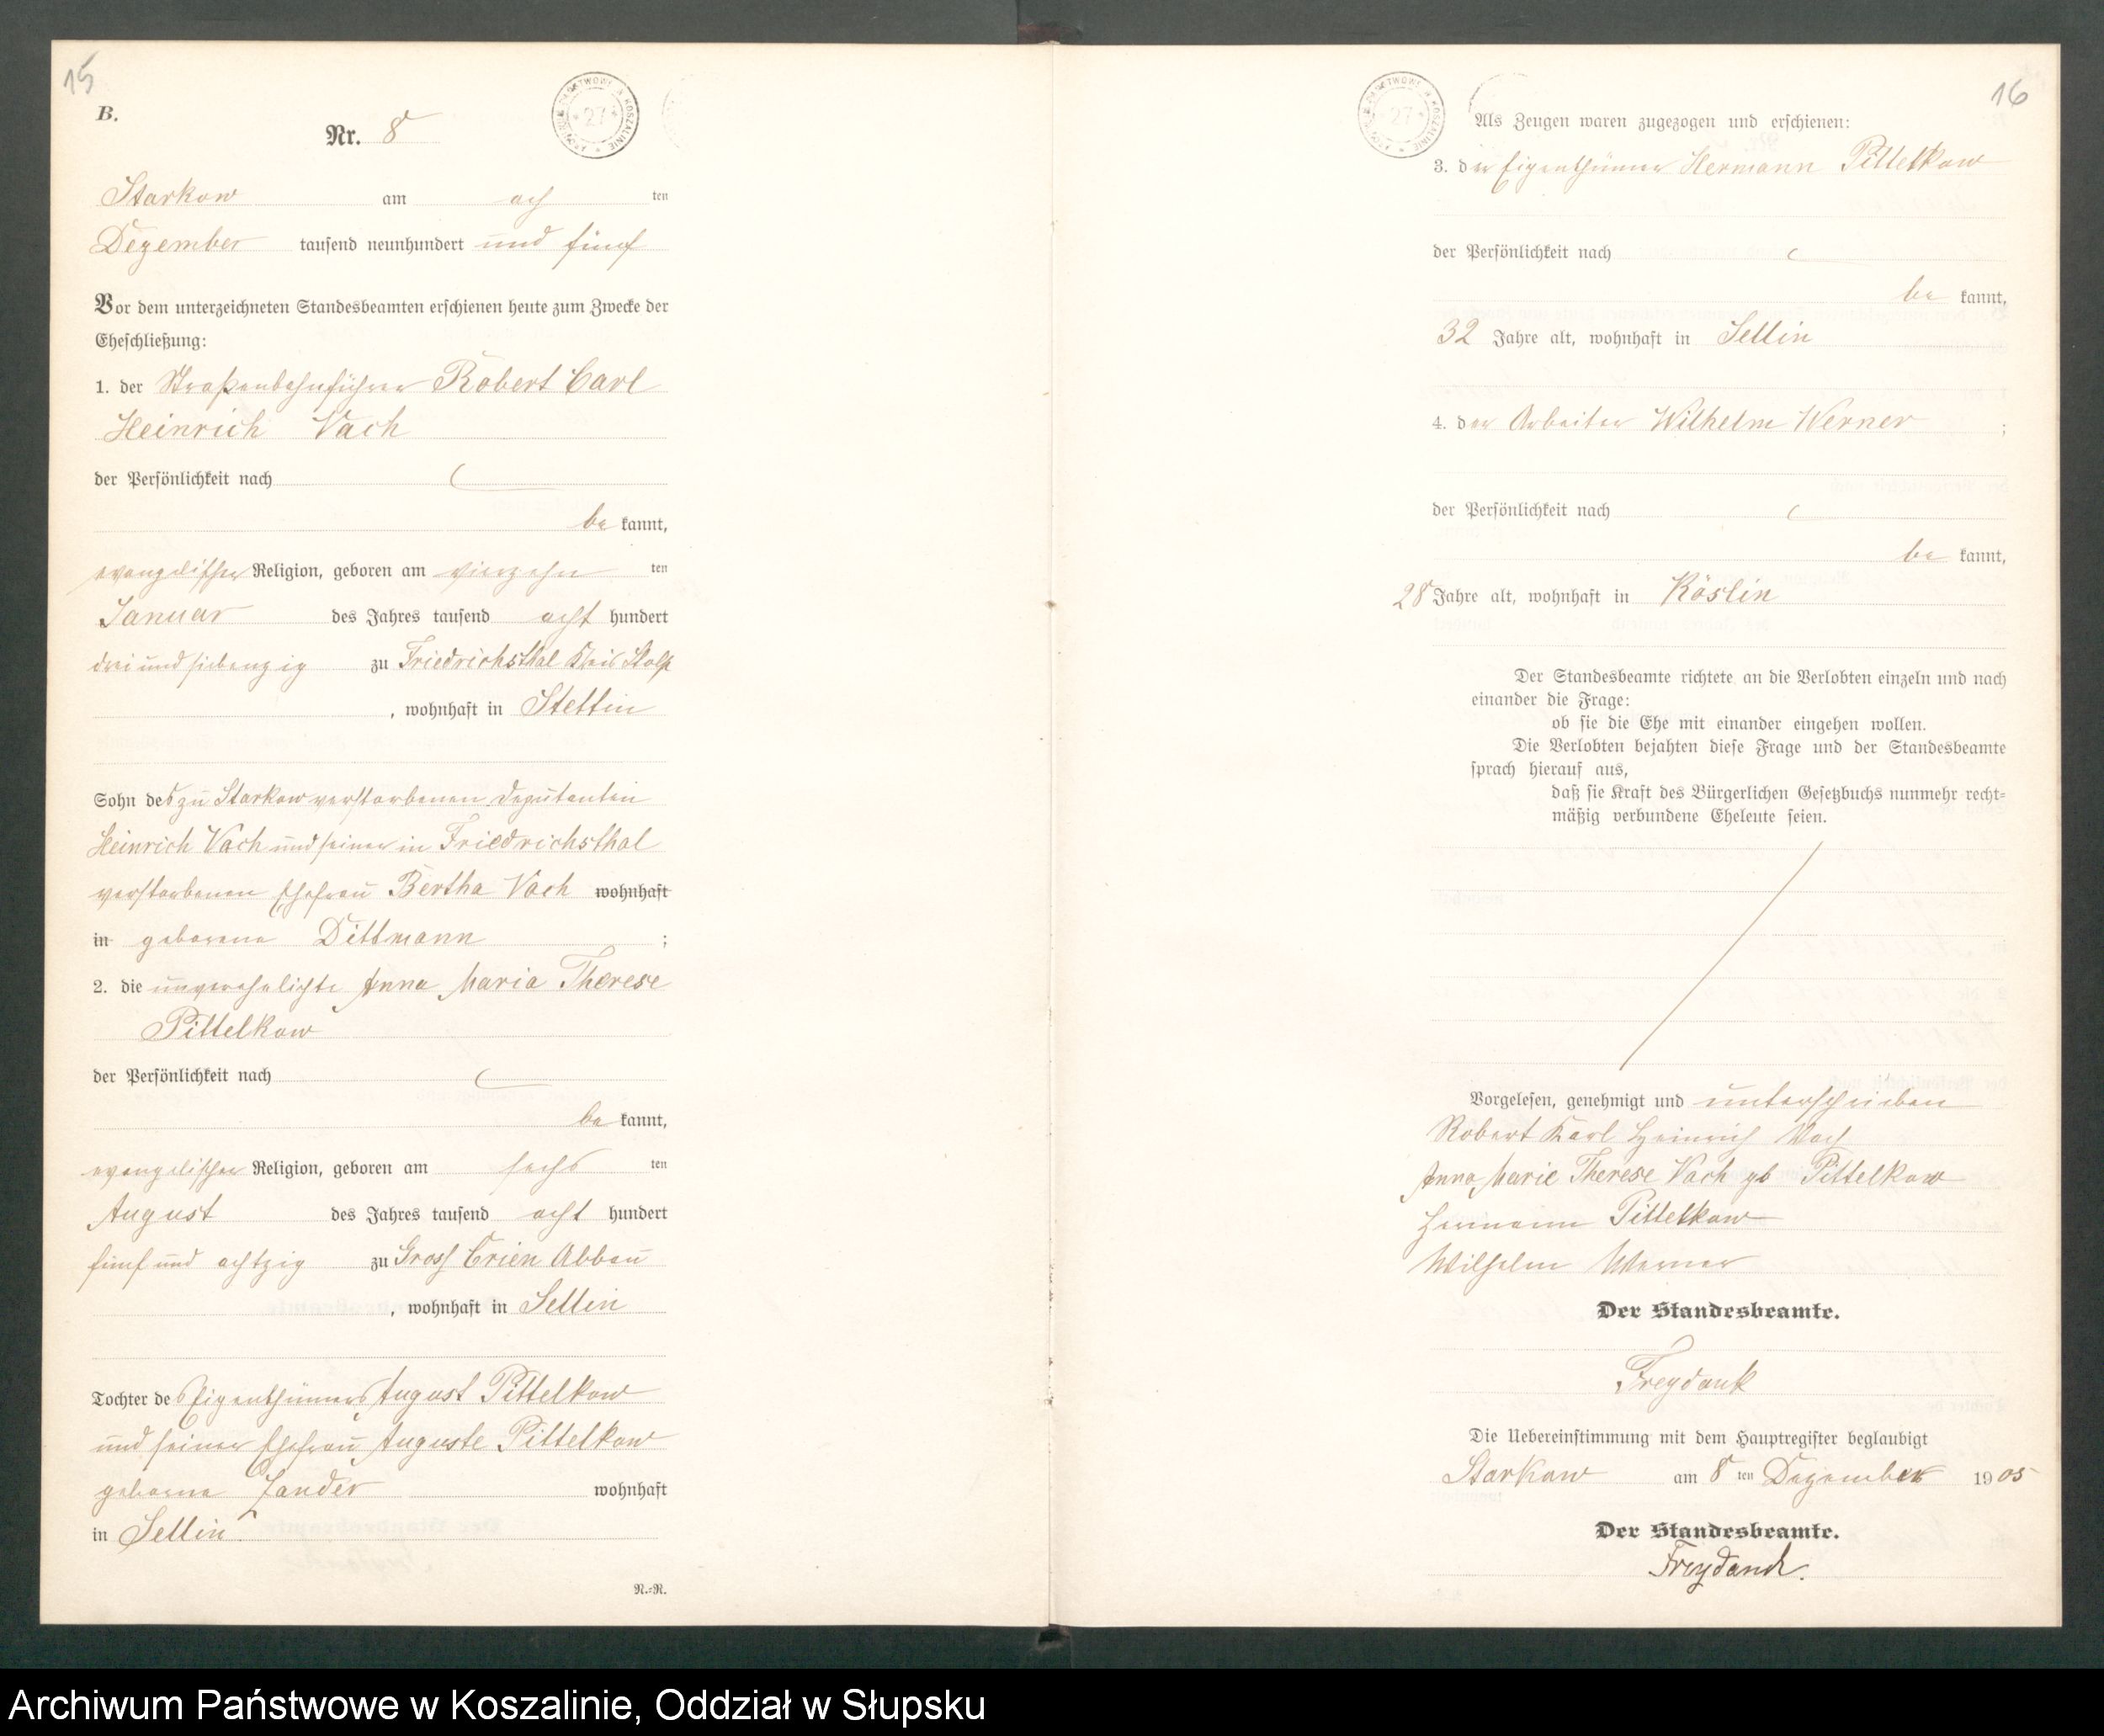 15
B.
Nr. 8
ARCHIWUM PAŃSTWOWE W KOSZALINIE * 27 *
Starkow am ach ten
Dezember tausend neunhundert und fünf
Vor dem unterzeichneten Standesbeamten erschienen heute zum Zwecke der
Eheschließung:
1. der Straßenbahnführer Robert Carl
Heinrich Vach
der Persönlichkeit nach
be kannt,
evangelischer Religion, geboren am vierzehn ten
Januar des Jahres tausend acht hundert
drei und siebenzig zu Friedrichsthal Kreis Stolp
, wohnhaft in Stettin
Sohn des zu Starkow verstorbenen Deputanten
Heinrich Vach und seiner in Friedrichsthal
verstorbenen Ehefrau Bertha Vach wohnhaft
in geborene Dittmann ;
2. die unverehelichte Anna Maria Therese
Pittelkow
der Persönlichkeit nach
be kannt,
evangelischer Religion, geboren am sechs ten
August des Jahres tausend acht hundert
fünf und achtzig zu Gross Crien Abbau
, wohnhaft in Sellin
Tochter des Eigenthümers August Pittelkow
und seiner Ehefrau Auguste Pittelkow
geborne Zander wohnhaft
in Sellin
N.-R.
16
ARCHIWUM PAŃSTWOWE W KOSZALINIE * 27 *
Als Zeugen waren zugezogen und erschienen:
3. der Eigenthümer Hermann Pittelkow
der Persönlichkeit nach
be kannt,
32 Jahre alt, wohnhaft in Sellin
4. der Arbeiter Wilhelm Werner ;
der Persönlichkeit nach
be kannt,
28 Jahre alt, wohnhaft in Köslin
Der Standesbeamte richtete an die Verlobten einzeln und nach
einander die Frage:
ob sie die Ehe mit einander eingehen wollen.
Die Verlobten bejahten diese Frage und der Standesbeamte
sprach hierauf aus,
daß sie Kraft des Bürgerlichen Gesetzbuchs nunmehr recht-
mäßig verbundene Eheleute seien.
Vorgelesen, genehmigt und unterschrieben
Robert Karl Heinrich Vach
Anna Marie Therese Vach gb Pittelkow
Hermann Pittelkow
Wilhelm Werner
Der Standesbeamte.
Freydank
Die Uebereinstimmung mit dem Hauptregister beglaubigt
Starkow am 8 ten Dezember 1905
Der Standesbeamte.
Freydank.
Archiwum Państwowe w Koszalinie, Oddział w Słupsku